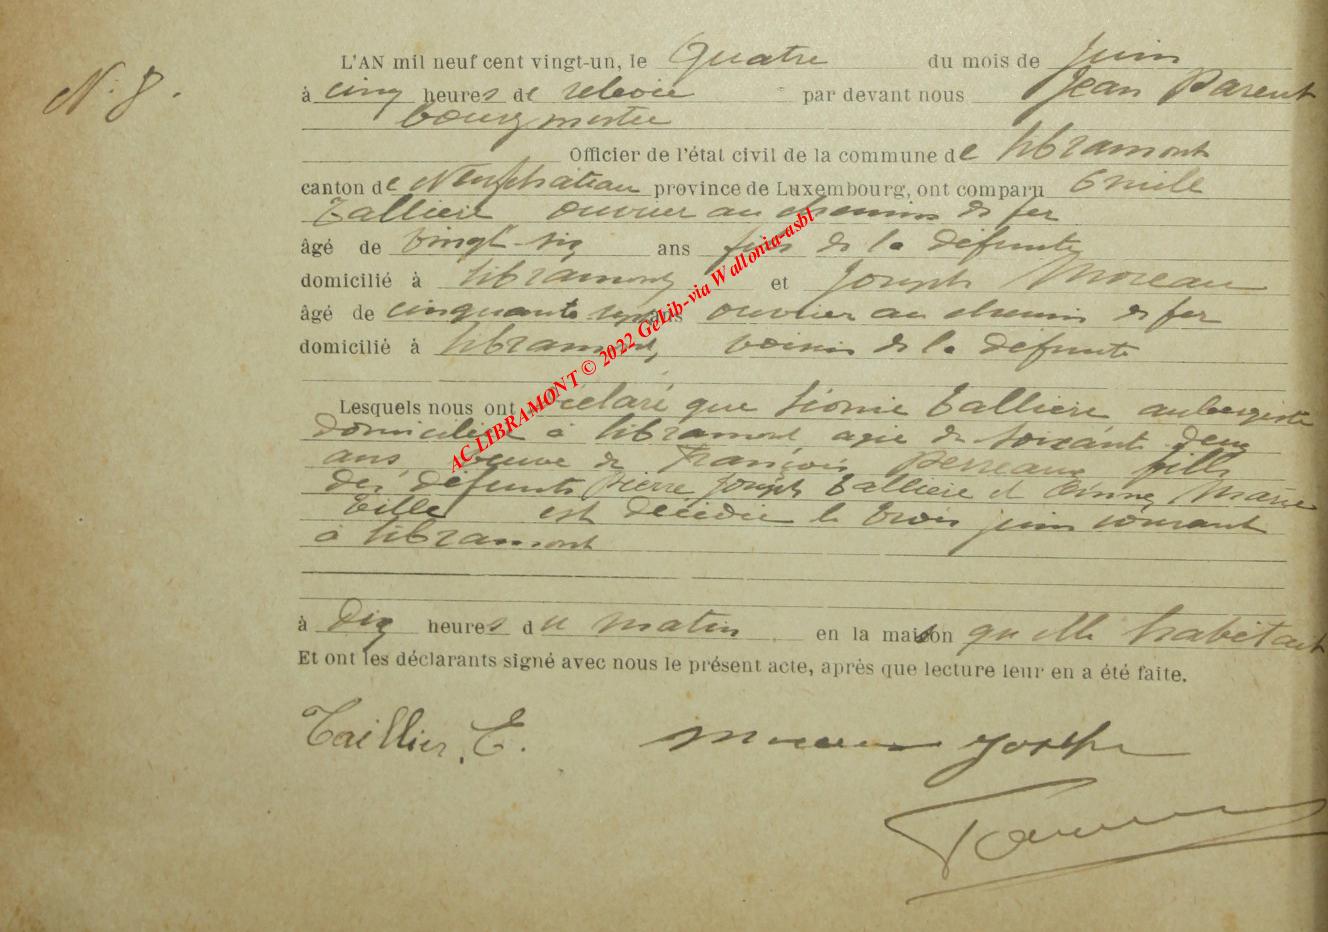 N° 8.
L'AN mil neuf cent vingt-un, le Quatre du mois de Juin
à cinq heures de relevée par devant nous Jean Parent
bourgmestre
Officier de l'état civil de la commune de Libramont
canton de Neufchâteau province de Luxembourg, ont comparu Emile
Tallière ouvrier au chemin de fer
âgé de vingt-six ans fils de la défunte
domicilié à Libramont et Joseph Moreau
âgé de cinquante sept ans ouvrier au chemin de fer
domicilié à Libramont, voisin de la défunte
Lesquels nous ont déclaré que Léonie Tallière aubergiste
domiciliée à Libramont agée de soixante deux
ans veuve de François Perreaux fille
des défunts Pierre Joseph Tallière et Marie
Tille est décédée le trois juin courant
à Libramont
à dix heures du matin en la maison qu'elle habitait
Et ont les déclarants signé avec nous le présent acte, après que lecture leur en a été faite.
Taillier, E. Moreau Joseph
AC LIBRAMONT © 2022 GeLib-via Wallonia-asbl